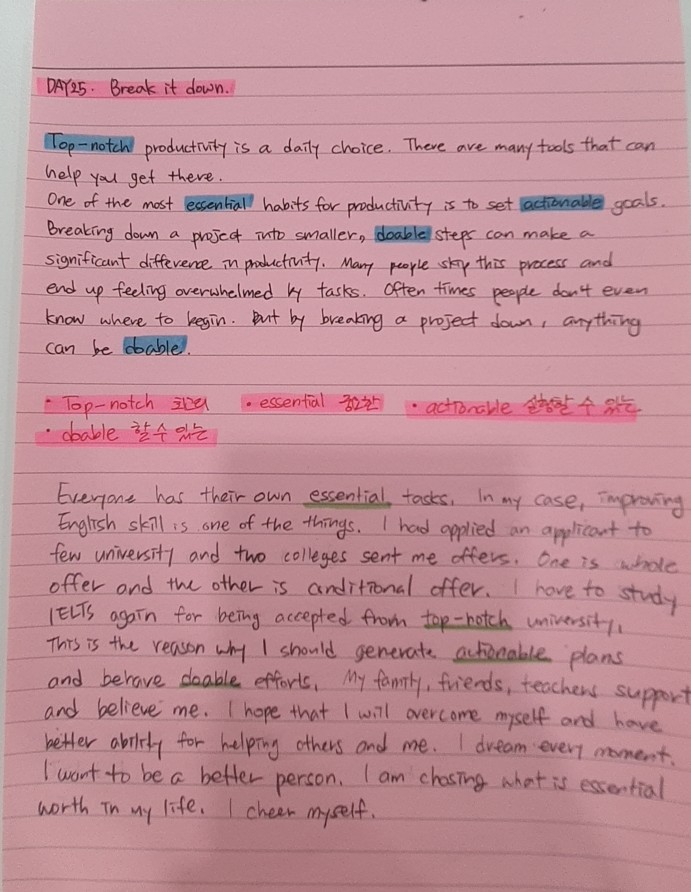 DAY25. Break it down.
Top-notch productivity is a daily choice. There are many tools that can
help you get there.
One of the most essential habits for productivity is to set actionable goals.
Breaking down a project into smaller, doable steps can make a
significant difference in productivity. Many people skip this process and
end up feeling overwhelmed by tasks. Often times people don't even
know where to begin. But by breaking a project down, anything
can be doable.
• Top-notch 최고의 • essential 중요한 • actionable 실행할 수 있는
• doable 할 수 있는
Everyone has their own essential tasks. In my case, improving
English skill is one of the things. I had applied an applicant to
few university and two colleges sent me offers. One is whole
offer and the other is conditional offer. I have to study
IELTS again for being accepted from top-notch university.
This is the reason why I should generate actionable plans
and behave doable efforts. My family, friends, teachers support
and believe me. I hope that I will overcome myself and have
better ability for helping others and me. I dream every moment.
I want to be a better person. I am chasing what is essential
worth in my life. I cheer myself.